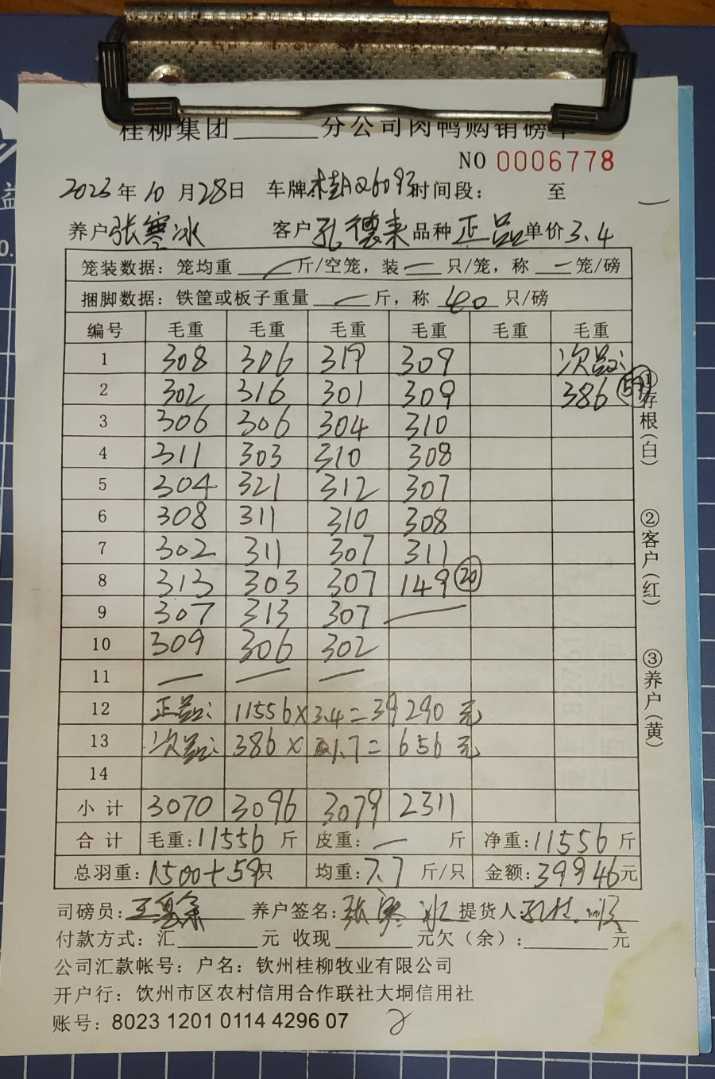 桂柳集团______分公司肉鸭购销磅单
NO 0006778
2023年10月28日 车牌:桂A Q6093 时间段: 至
养户 张寒冰 客户 孔德来 品种 正品 单价 3.4
笼装数据:笼均重 / 斤/空笼,装 一 只/笼,称 一 笼/磅
捆脚数据:铁筐或板子重量 一 斤,称 40 只/磅
编号 毛重 毛重 毛重 毛重 毛重 毛重
1 308 306 319 309 次品:
2 302 316 301 309 386 (59)
3 306 306 304 310
4 311 303 310 308
5 304 321 312 307
6 308 311 310 308
7 302 311 307 311
8 313 303 307 149 (20)
9 307 313 307 —
10 309 306 302
11 — — —
12 正品: 11556×3.4=39290元
13 次品: 386×1.7=656元
14
小计 3070 3096 3079 2311
合计 毛重:11556斤 皮重: — 斤 净重:11556斤
总羽重:1500+59只 均重:7.7斤/只 金额:39946元
司磅员: 养户签名:张寒冰 提货人:
付款方式:汇______元 收现______元欠(余):______元
公司汇款帐号:户名:钦州桂柳牧业有限公司
开户行:饮州市区农村信用合作联社大垌信用社
账号:8023 1201 0114 4296 07
①存根(白)
②客户(红)
③养户(黄)